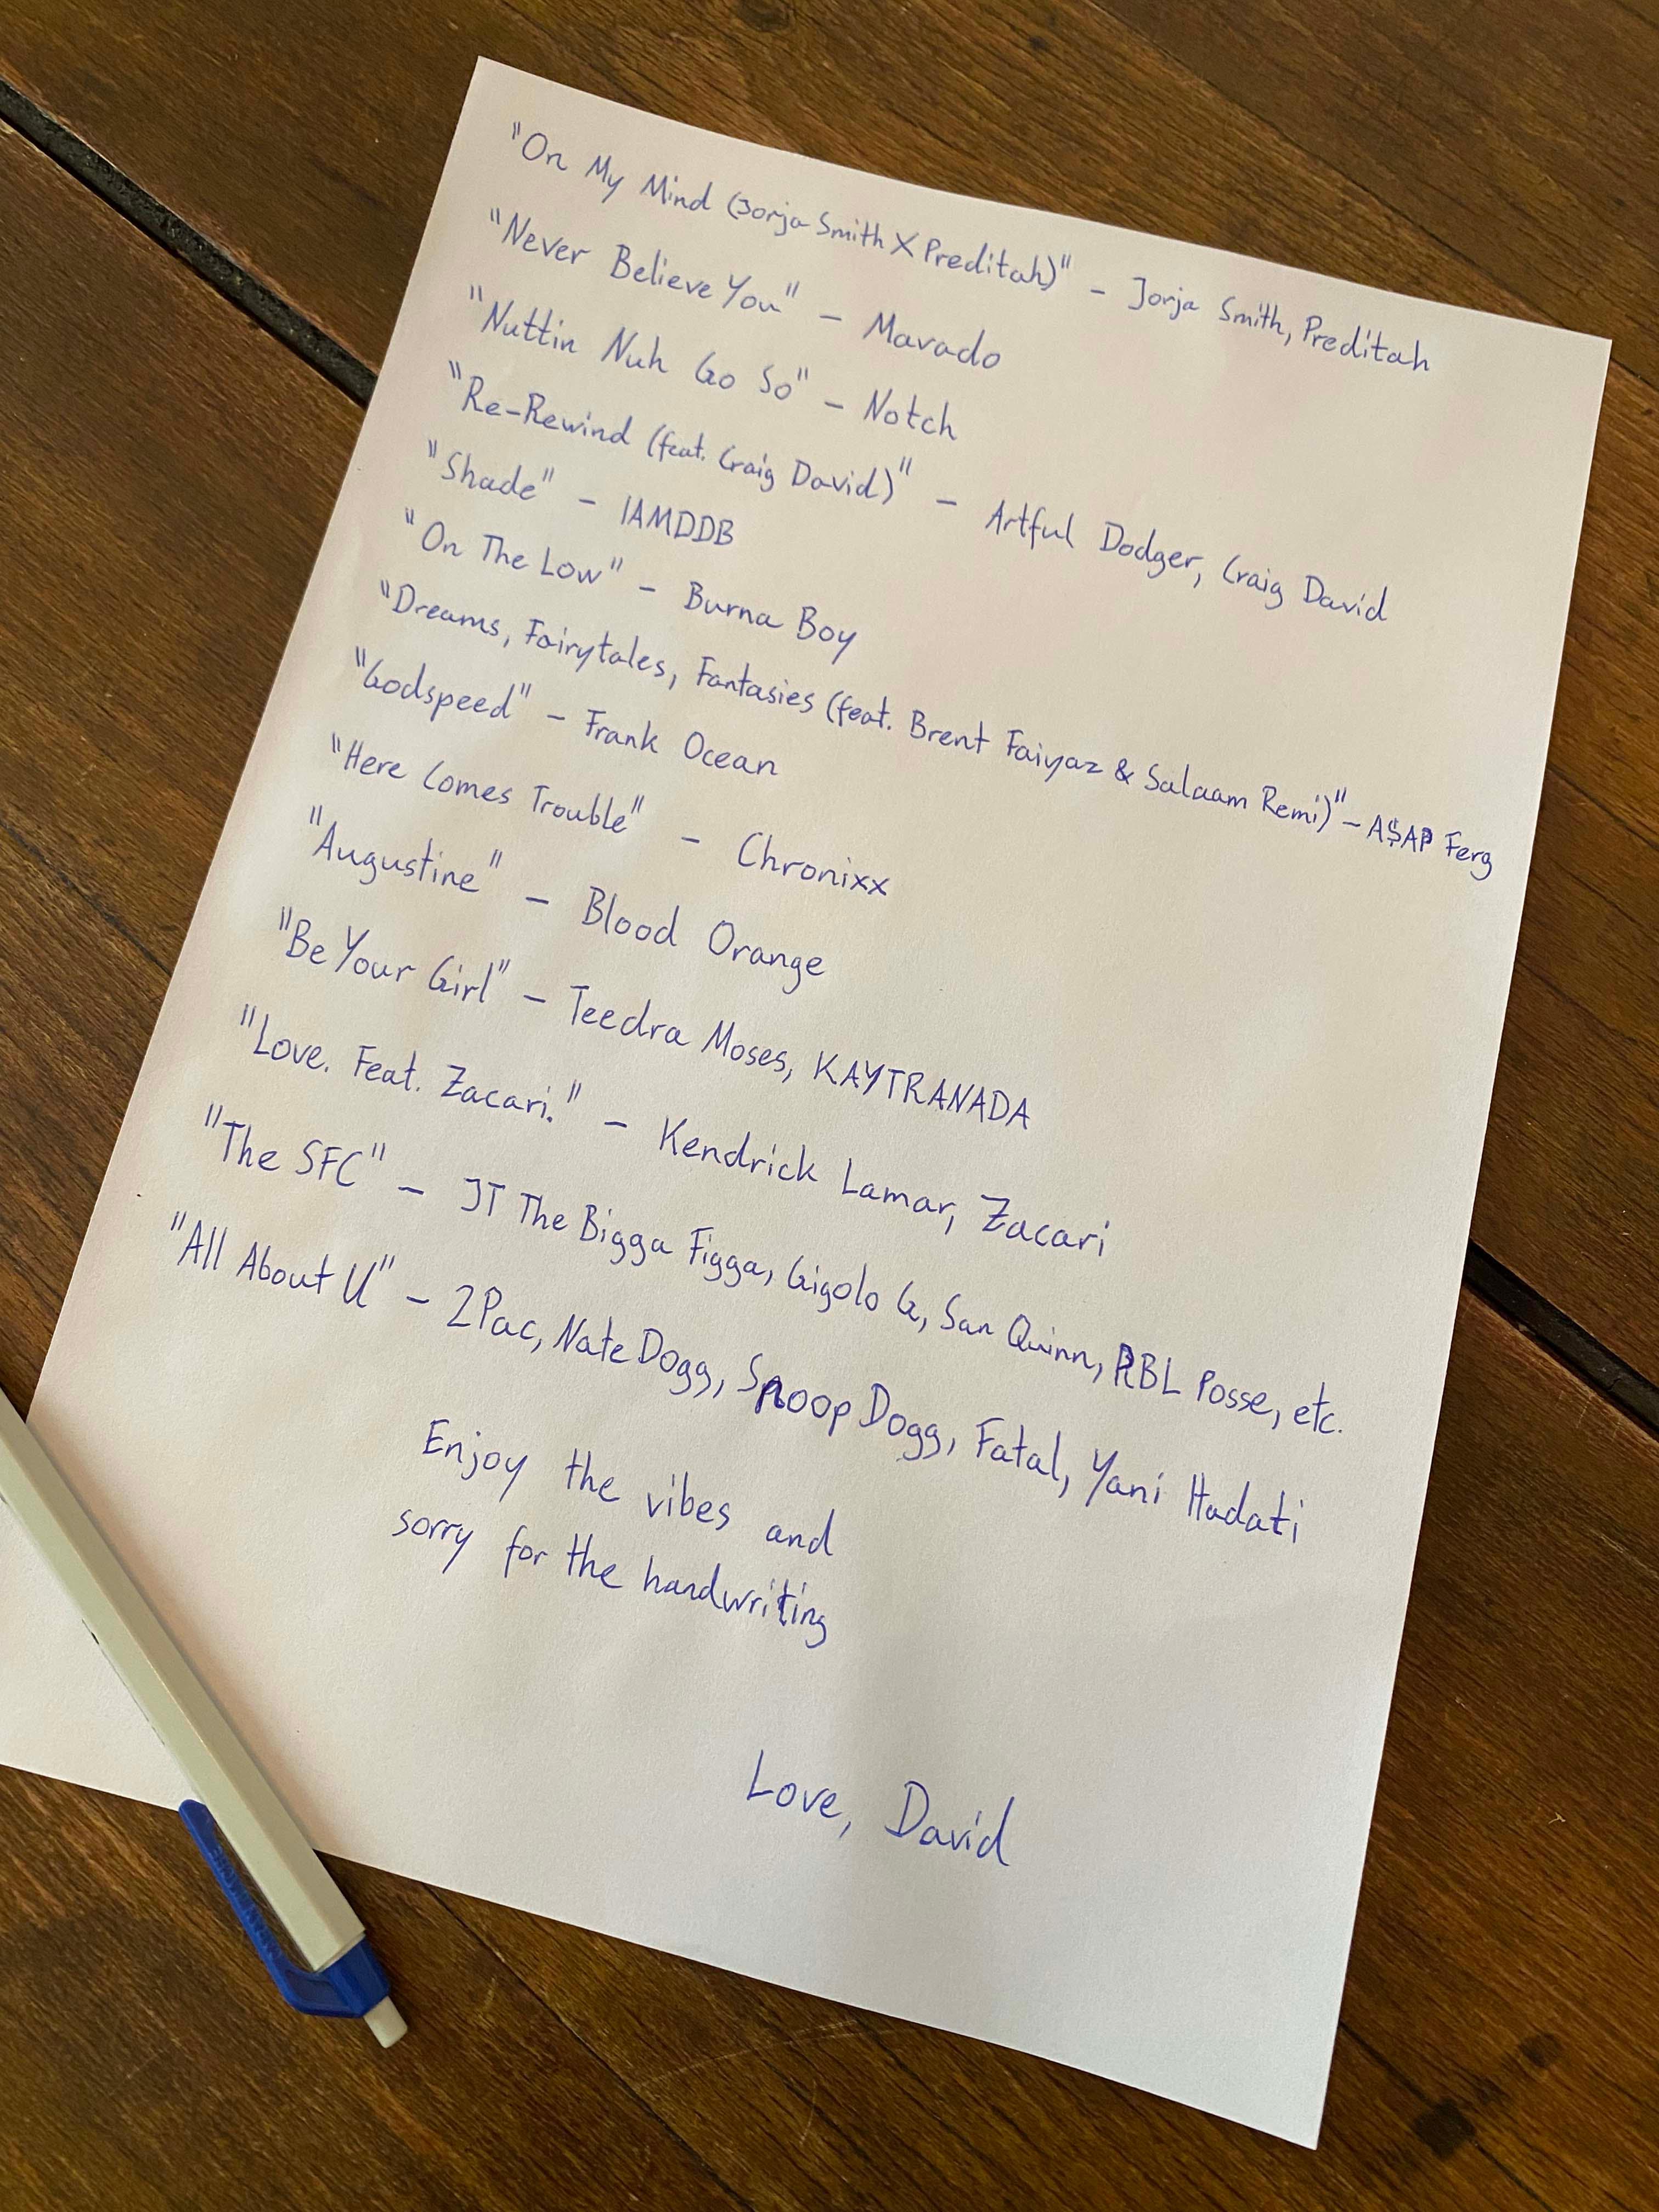 "On My Mind (Jorja Smith X Preditah)" - Jorja Smith, Preditah
"Never Believe You" - Mavado
"Nuttin Nuh Go So" - Notch
"Re-Rewind (feat. Craig David)" - Artful Dodger, Craig David
"Shade" - IAMDDB
"On The Low" - Burna Boy
"Dreams, Fairytales, Fantasies (feat. Brent Faiyaz & Salaam Remi)" - A$AP Ferg
"Godspeed" - Frank Ocean
"Here Comes Trouble" - Chronixx
"Augustine" - Blood Orange
"Be Your Girl" - Teedra Moses, KAYTRANADA
"Love. Feat. Zacari." - Kendrick Lamar, Zacari
"The SFC" - JT The Bigga Figga, Gigolo G, San Quinn, RBL Posse, etc.
"All About U" - 2Pac, Nate Dogg, Snoop Dogg, Fatal, Yani Hadati
Enjoy the vibes and
sorry for the handwriting
Love, David